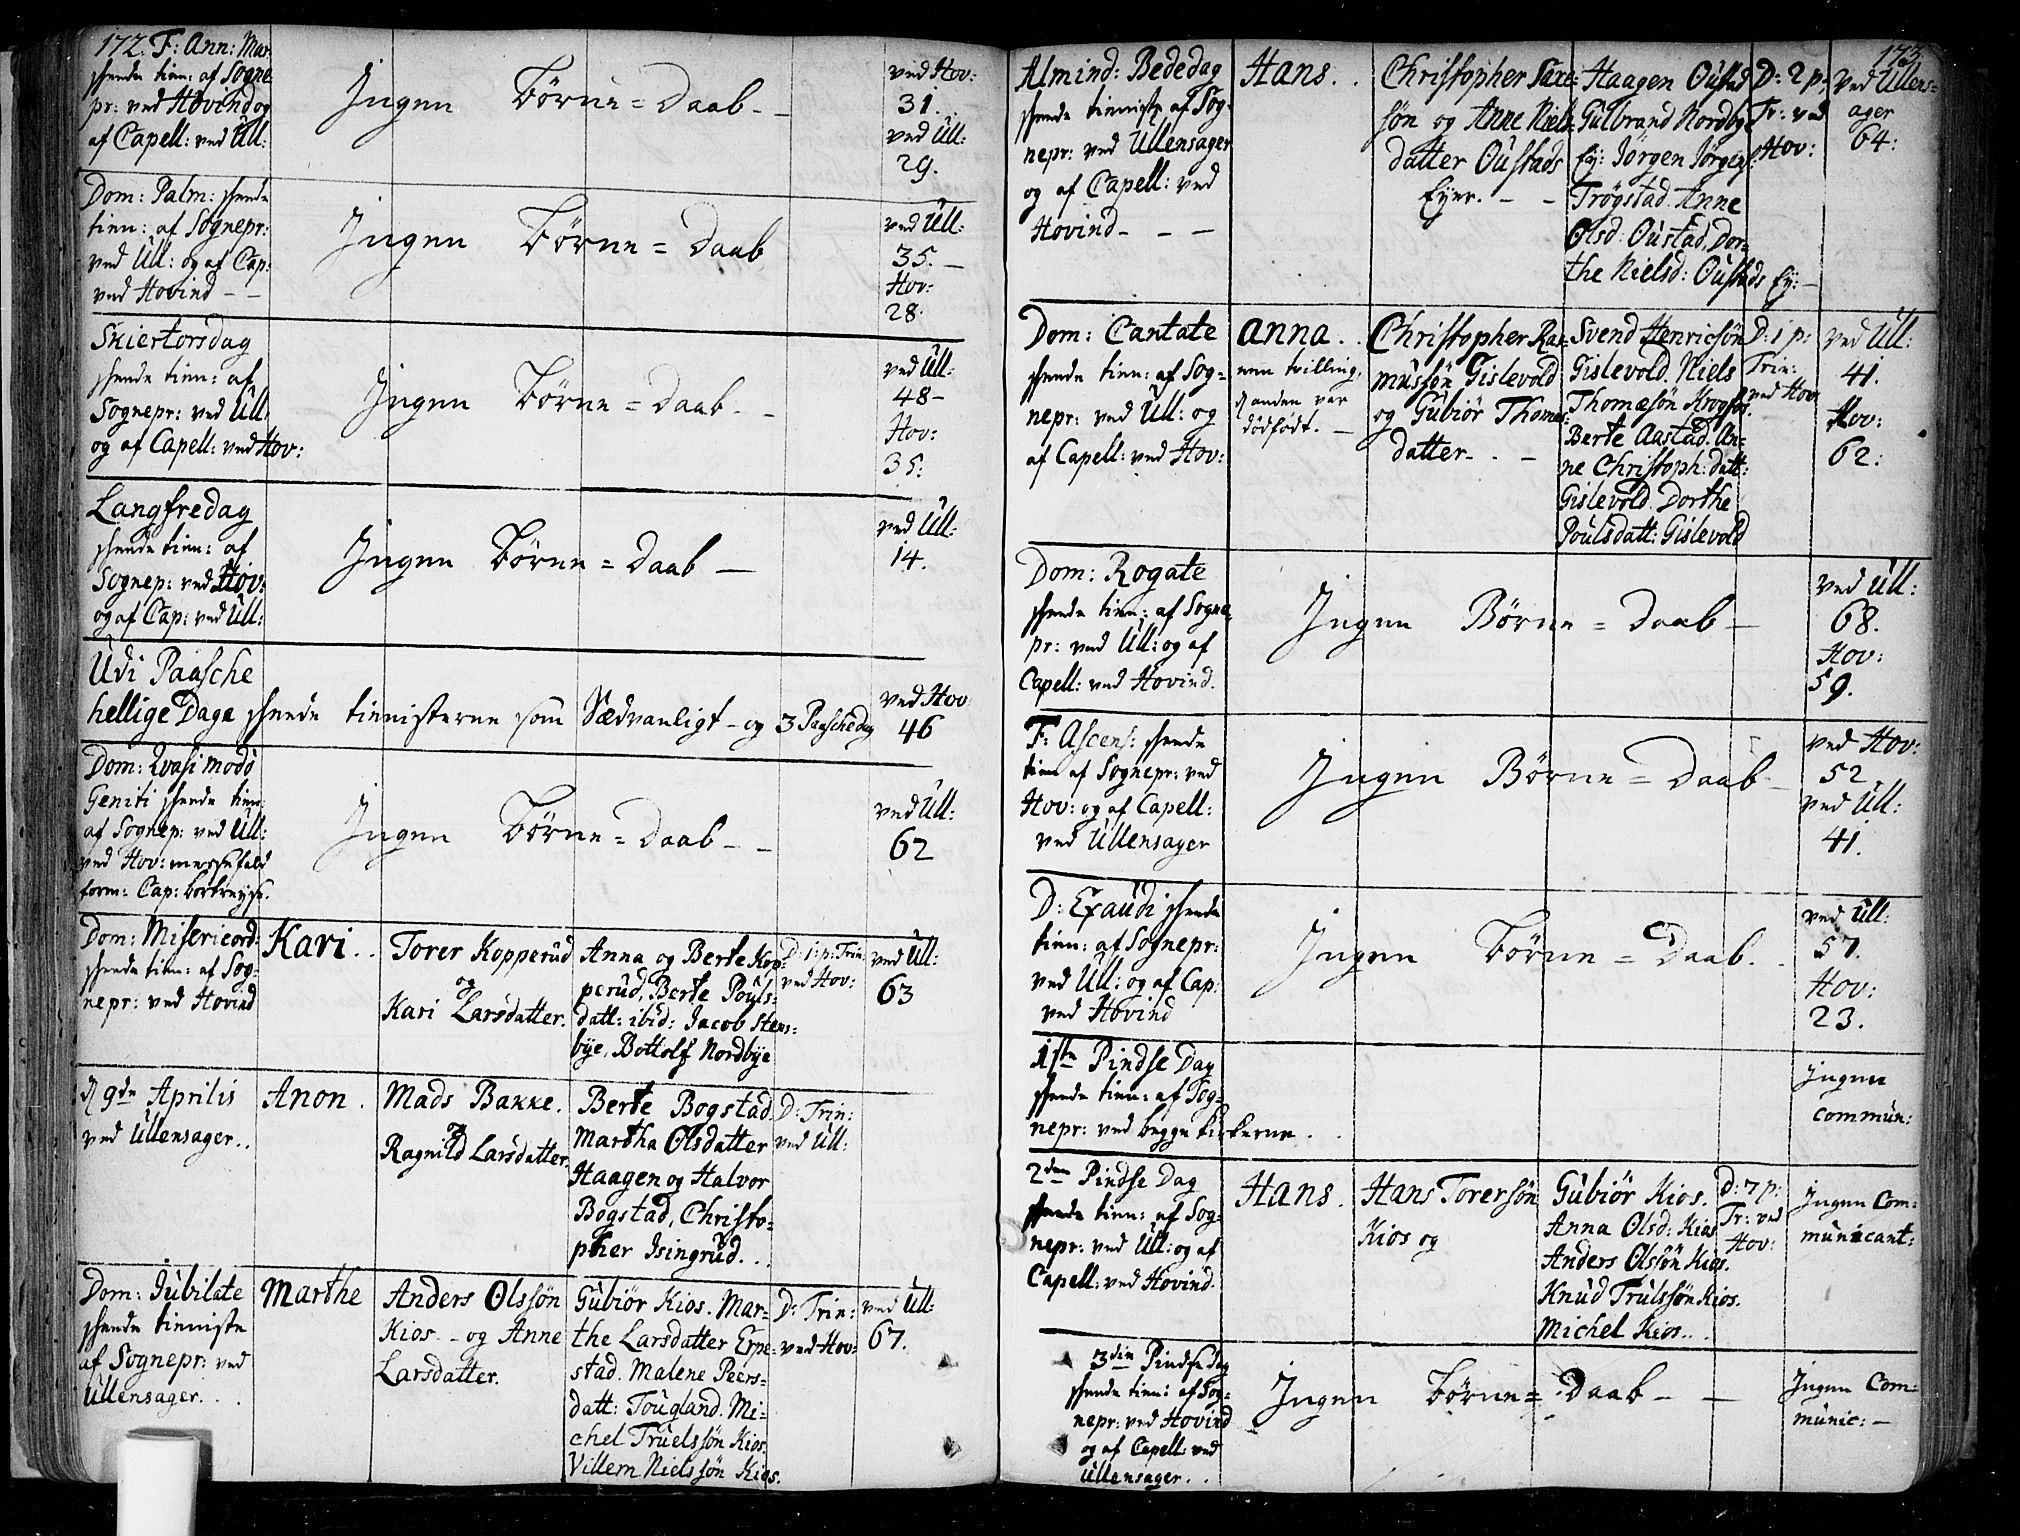 172. F: Ann: Mar:
skeede tien: af Sogne
pr: ved Hovind og
af Capell: ved Ull:
Ingen Börne = Daab - -
ved Hov:
31.
ved Ull:
29.
Dom: Palm: skeede
tien: af Sognepr:
ved Ull: og af Cap:
ved Hovind - -
Ingen Börne = Daab
ved Ull:
35. -
Hov:
28:
Skiertorsdag
skeede tien: af
Sognepr: ved Ull:
og af Capell: ved Hov:
Ingen Börne = Daab - -
ved Ull:
48 -
Hov:
35:
Langfredag
skeede tien: af
Sognep: ved Hov:
og af Cap: ved Ull:
Ingen Börne = Daab -
ved Ull:
14.
Udi Paasche
hellige Dage skeede tienisterne som Sædvanligt - og 3 Paaschedag
ved Hov
46
Dom: Qvasi modo
Geniti skeede tien:
af Sognep: ved Ull:
ved Hov: messefald
form: Cap: bortreyse.
Ingen Börne = Daab - -
ved Ull:
62
Dom: Misericord:
skeede tien: af Sog-
nepr: ved Hovind
Kari. .
Torer Kopperud
og
Kari Larsdatter.
Anna og Berte Kop-
perud, Berte Pouls-
datt: ibid: Jacob Stens-
bye, Bottolf Nordbye
D: 1: p: Trin:
ved Hov:
ved Ull:
63
d 9de Aprilis
ved Ullensager. .
Anon.
Mads Bakke.
og
Ragnild Larsdatter.
Berte Bogstad
Martha Olsdatter
Haagen og Halvor
Bogstad, Christo-
pher Isingrud. . .
D: Trin:
ved Ull:
Dom: Jubilate
skeede tieniste
af Sognepr: ved
Ullensager. . .
Marthe
Anders Olssön
Kios - og Anne
Larsdatter.
Gubiör Kios. Mar-
the Larsdatter Erpe-
stad. Malene Peers-
datt: Tougland. Mi-
chel Truelssön Kios.
Villem Nielssön Kios.
D: Trin:
ved Hov:
ved Ull:
67.
173
Almind: Bededag
skeede tieniste af Sog-
nepr: ved Ullensager
og af Capell: ved
Hovind - - -
Hans. .
Christopher Saxe-
sön og Anne Niels-
datter Oustads
Eyer. - -
Haagen Oustad
Gulbrand Nordbye
Ey: Jörgen Jörgens:
Trögstad. Anne
Olsd: Oustad, Dor-
the Nielsd: Oustads Ey: -
D: 2 p:
Tr: ved
Hov:
ved Ullens-
ager
64:
Dom: Cantate
skeede tien: af Sog-
nepr: ved Ull: og
af Capell: ved Hov:
Anna. .
een tvilling,
d anden var
dödfödt. -
Christopher Ras-
mussön Gislevold
og Gubiör Thomas-
datter - . -
Svend Henricsön
Gislevold. Niels
Thomæsön
Berte Aastad. An-
ne Christoph: datt:
Gislevold. Dorthe
Poulsdatt: Gislevold
D: 1 p:
Trin:
ved Hov:
ved Ull:
41.
Hov:
62:
Dom: Rogate
skeede tien: af Sogne
pr: ved Ull: og af
Capell: ved Hovind.
Ingen Börne = Daab -
ved Ull:
68.
Hov:
59.
F: Ascens: skeede
tien af Sognepr: ved
Hov: og af Capell:
ved Ullensager
Ingen Börne = Daab -
ved Hov:
52
ved Ull:
41.
D: Exaudi skeede
tien: af Sognepr:
ved Ull: og af Cap:
ved Hovind
Ingen Börne = Daab. .
ved Ull:
57.
Hov:
23.
1ste Pindse Dag
skeede tien: af Sog-
nepr: ved begge Kirkerne. . .
Ingen
commun:
2den Pindse Dag
skeede tien: af Sog-
nepr: ved Ull: og af
Capell: ved Hovind.
Hans.
Hans Torersön
Kios og
Gubiör Kios.
Anna Olsd: Kios
Anders Olssön Kios.
Knud Trulssön Kios.
Michel Kios. . .
D: 7 p:
Tr: ved
Hov:
Ingen Com-
municant:
3die Pindsedag
skeede tien: af Sog-
nepr: ved Hovind
og af Capell: ved
Ullensager. . .
Ingen Börne = Daab - -
Ingen Com-
munic: -